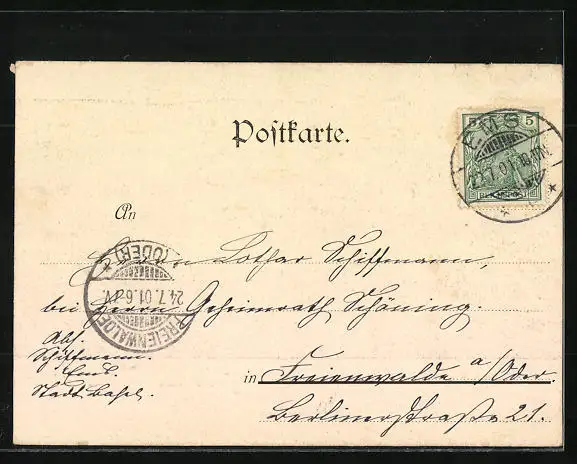 Postkarte.
5 5
EMS
7.01.
An
Herrn Lothar Schiffmann,
bei Herrn Geheimrath Schöning.
in Freienwalde a/Oder
Berlinerstraße 21.
FREIENWALDE
(ODER)
24.7.01.6-7V.
Abs.
Schiffmann.
Ems.
Stadt Basel.